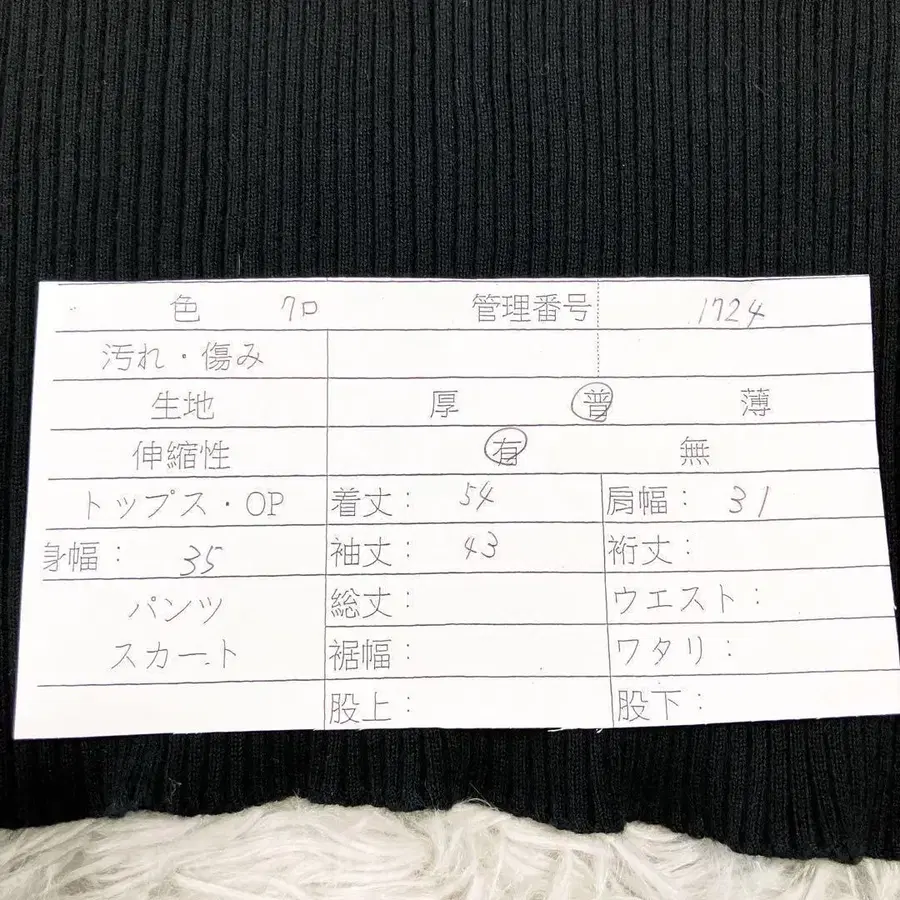 色 クロ 管理番号 1724
汚れ・傷み
生地 厚 普 薄
伸縮性 有 無
トップス・OP 着丈: 54 肩幅: 31
身幅: 35 袖丈: 43 裄丈:
パンツ 総丈: ウエスト:
スカート 裾幅: ワタリ:
股上: 股下: